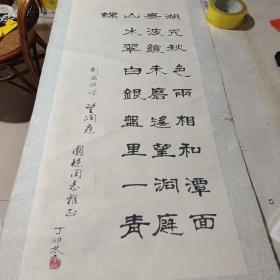 湖光秋色兩相和潭面
無波鏡未磨遙望洞庭
山水翠白銀盤里一青
螺
劉禹錫詩 望洞庭 國樑同志雅正
丁卯冬